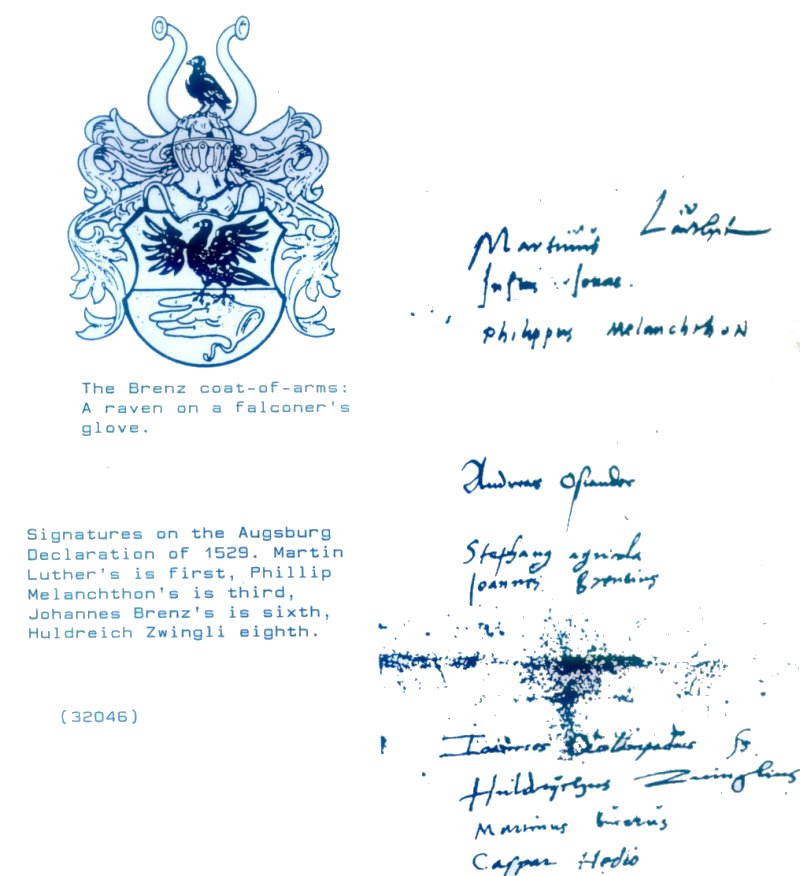 The Brenz coat-of-arms:
A raven on a falconer's
glove.
Signatures on the Augsburg
Declaration of 1529. Martin
Luther's is first, Phillip
Melanchthon's is third,
Johannes Brenz's is sixth,
Huldreich Zwingli eighth.
(32046)
Martinus
Jonas.
philippus Melanchthon
Andreas Osiander
Stephanus agricola
Joannes Brentius
Huldrychus Zuinglius
Martinus bucerus
Caspar Hedio